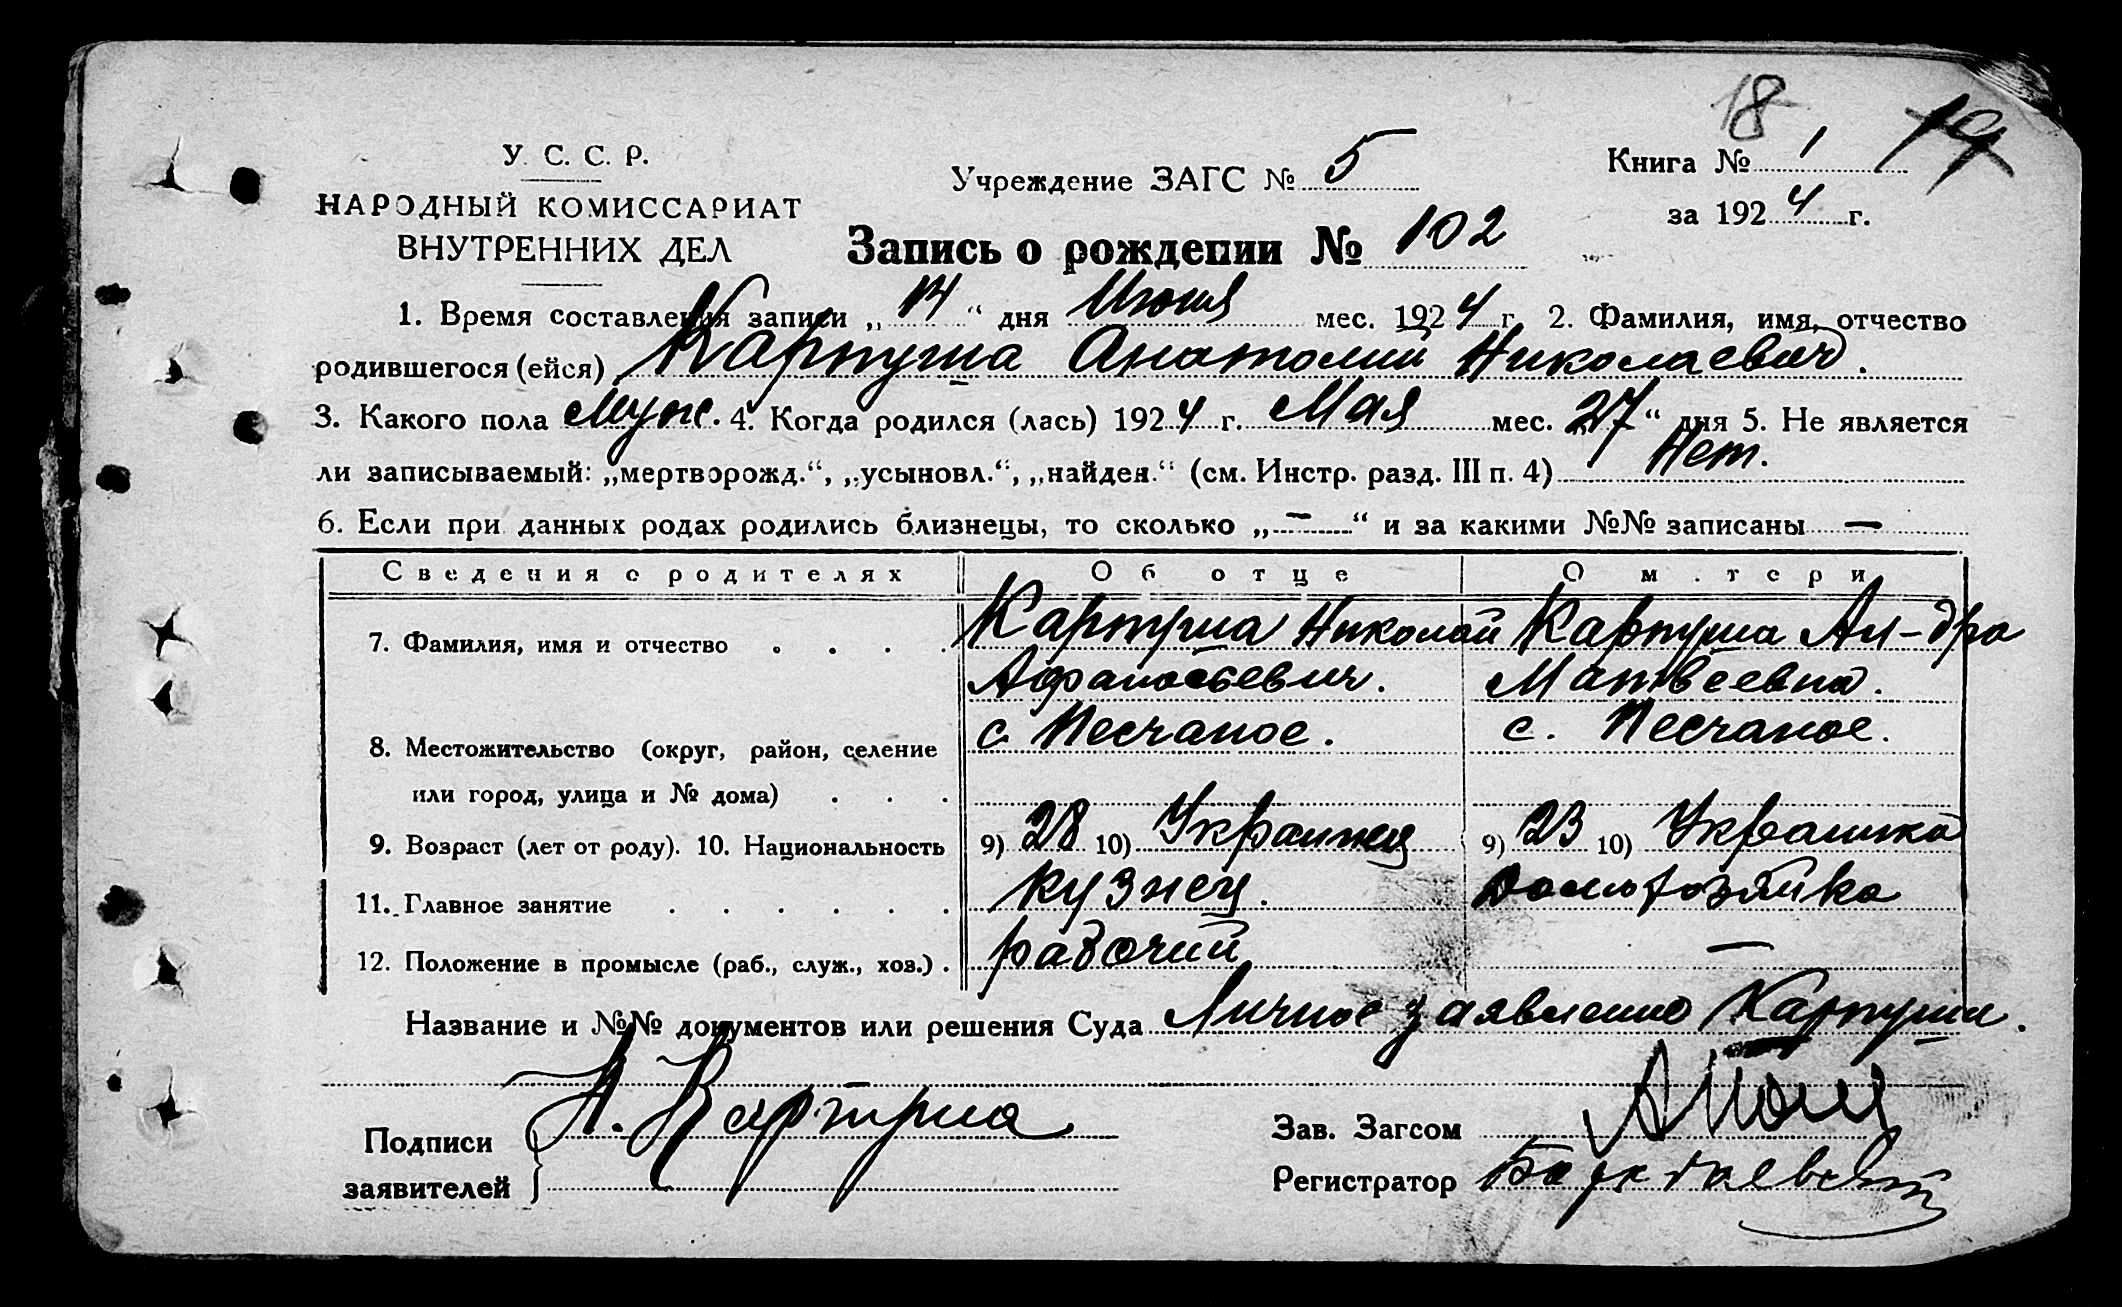 18 19
У. С. С. Р.
НАРОДНЫЙ КОМИССАРИАТ
ВНУТРЕННИХ ДЕЛ
Учреждение ЗАГС № 5
Книга № 1
за 1924 г.
Запись о рождении № 102
1. Время составления записи „14“ дня Июня мес. 1924 г. 2. Фамилия, имя, отчество
родившегося (ейся) Картуша Анатолий Николаевич.
3. Какого пола муж. 4. Когда родился (лась) 1924 г. Мая мес. 27“ дня 5. Не является
ли записываемый: „мертворожд.“, „усыновл.“, „найден.“ (см. Инстр. разд. III п. 4) Нет.
6. Если при данных родах родились близнецы, то сколько „—“ и за какими №№ записаны —
Сведения о родителях Об отце О м.тери
7. Фамилия, имя и отчество . . . . Картуша Николай Картуша Ал-дра
Афанасьевич. Матвеевна.
8. Местожительство (округ, район, селение с. Песчаное. с. Песчаное.
или город, улица и № дома) . . .
9. Возраст (лет от роду). 10. Национальность 9) 28 10) Украинец 9) 23 10) Украинка
11. Главное занятие . . . . . . кузнец. Домохозяйка
12. Положение в промысле (раб., служ., хоз.) . рабочий —
Название и №№ документов или решения Суда Личное заявление Картуши.
Подписи
заявителей
Н. Картуша
Зав. Загсом
Регистратор